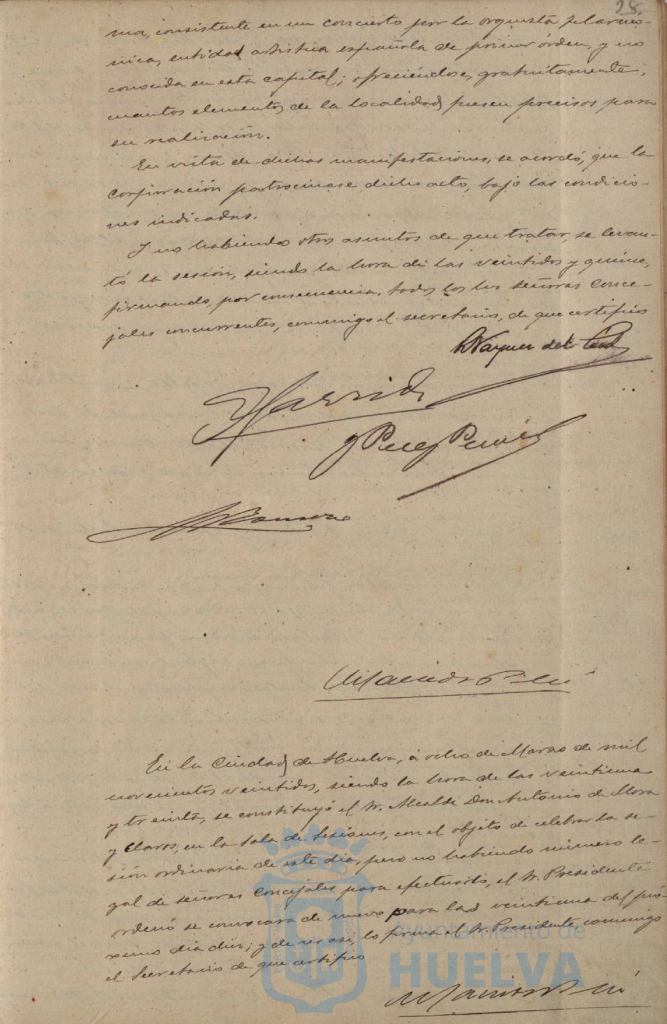 28.
ma, consistente en un concierto por la orquesta filarmó-
nica, entidad artística española de primer órden, y no
conocida en esta capital; ofreciéndoes, gratuitamente,
cuantos elementos de la localidad, fuesen precisos para
su realización.
En vista de dichas manifestaciones, se acordó, que la
Corporación patrocinase dicho acto, bajo las condicio-
nes indicadas.
Y no habiendo otros asuntos de que tratar, se levan-
tó la sesión, siendo la hora de las veintidos y quince,
firmando, por consecuencia, todos los señores Conce-
jales concurrentes, conmigo el secretario, de que certifico
Vazquez del
Garrido
Perez
Romero
En la Ciudad de Huelva, á ocho de Marzo de mil
novecientos veintidos, siendo la hora de las veintiuna
y treinta, se constituyó el Sr. Alcalde Don Antonio de Mora
y Claros, en la Sala de Sesiones, con el objeto de celebrar la se-
sión ordinaria de este dia, pero no habiendo número le-
gal de señores Concejales para efectuarlo, el Sr. Presidente
ordenó se convocara de nuevo para las veintiuna del pró-
ximo dia diez; y de ser asi, lo firma el Sr. Presidente, conmigo
el Secretario de que certifico
Ayuntamiento de
HUELVA